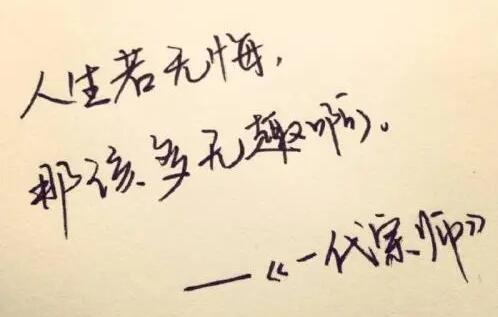 人生若无悔,
那该多无趣啊。
——《一代宗师》